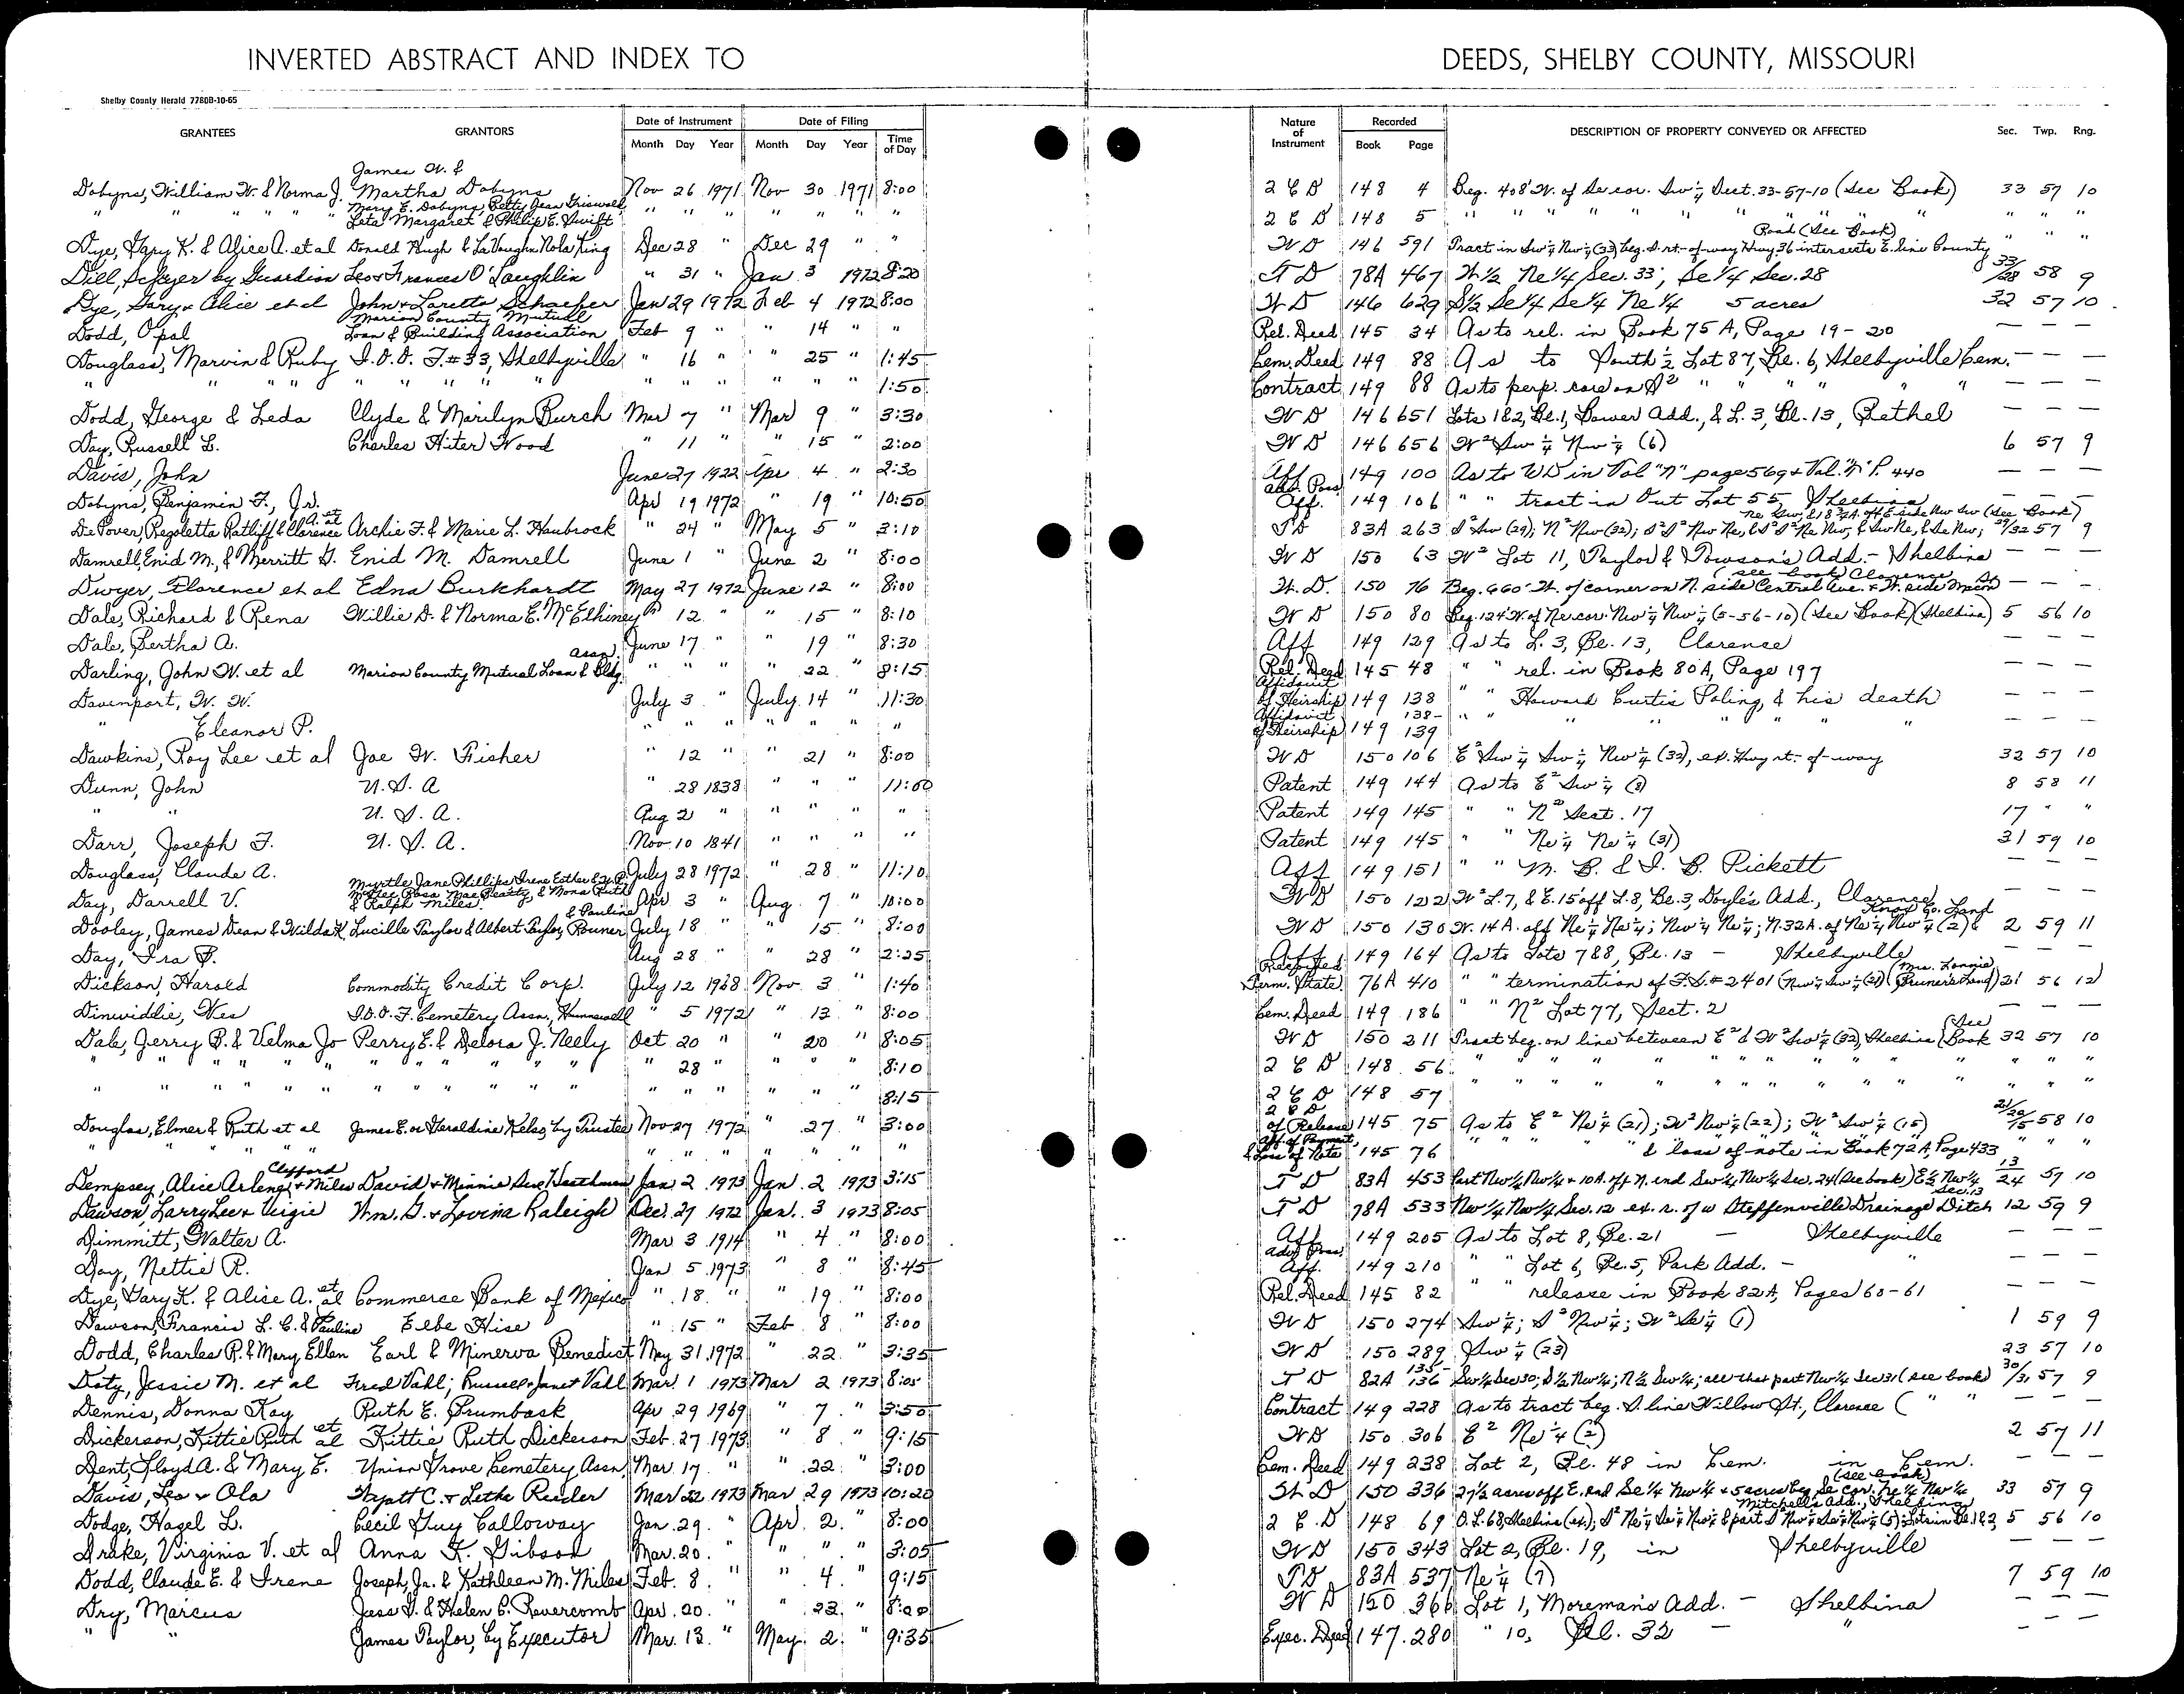 INVERTED ABSTRACT AND INDEX TO DEEDS, SHELBY COUNTY, MISSOURI
Shelby County Herald 7780B-10-65
GRANTEES GRANTORS Date of Instrument Month Day Year Date of Filing Month Day Year Time of Day Nature of Instrument Recorded Book Page DESCRIPTION OF PROPERTY CONVEYED OR AFFECTED Sec. Twp. Rng.
Dobyns, William W. & Norma J. James W. & Martha Dobyns Nov 26 1971 Nov 30 1971 8:00 2 C D 148 4 Beg. 408' W. of Se cor. Sw 1/4 Sect. 33-57-10 (See Book) 33 57 10
" " " " " Mary E. Dobyns, Betty Jean Griswold, Leta Margaret & Philip E. Swift " " " " " " " 2 C D 148 5 " " " " " " " " " " "
Dye, Gary K. & Alice A. et al Donald Hugh & LaVaughn Nola King Dec 28 " Dec 29 " " W D 146 591 Tract in Sw 1/4 Nw 1/4 (33) beg. S. rt.-of-way Hwy. 36 intersects E. line County Road (See Book) " " "
Dill, by Guardian Leo & Frances O'Laughlin " 31 " Jan 3 1972 8:20 T D 78A 467 W 1/2 Ne 1/4 Sec. 33; Se 1/4 Sec. 28 33/28 58 9
Dye, Gary & Alice et al John & Loretta Schaefer Jan 29 1972 Feb 4 1972 8:00 W D 146 629 S 1/2 Se 1/4 Se 1/4 Ne 1/4 5 acres 32 57 10
Dodd, Opal Marion County Mutual Loan & Building Association Feb 9 " " 14 " " Rel. Deed 145 34 As to rel. in Book 75A, Page 19-20 — — —
Douglass, Marvin & Ruby I.O.O.F. #33, Shelbyville " 16 " " 25 " 1:45 Cem. Deed 149 88 As to South 1/2 Lot 87, Bl. 6, Shelbyville Cem. — — —
" " " " " " " " " " " " " " " 1:50 Contract 149 88 As to perp. care on S2 " " " " " — — —
Dodd, George & Leda Clyde & Marilyn Burch Mar 7 " Mar 9 " 3:30 W D 146 651 Lots 1&2, Bl. 1, Bower Add., & L. 3, Bl. 13, Bethel — — —
Day, Russell L. Charles Hiter Wood " 11 " " 15 " 2:00 W D 146 656 W2 Sw 1/4 Nw 1/4 (6) 6 57 9
Davis, John June 27 1922 Apr 4 " 2:30 Aff 149 100 As to WD in Vol "N" page 569 & P. 440 — — —
Dobyns, Benjamin F., Jr. Apr 19 1972 " 19 " 10:50 Adv. Poss. Aff. 149 106 " " tract in Out Lot 55 Shelbina — — —
DePover, Regoletta Ratliff & Clarence A. et al Archie F. & Marie L. Haubrock " 24 " May 5 " 3:10 T D 83A 263 S2 Sw (29); N2 Nw (32); S2 S2 Nw Ne, & S2 S2 Ne Nw, & Sw Ne, & Se Nw; Ne Sw, & 18 3/4 A. off E. side Nw Sw (See Book) 29/32 57 9
Damrell, Enid M., & Merritt G. Enid M. Damrell June 1 " June 2 " 8:00 W D 150 63 W2 Lot 11, Taylor & Towson's Add. - Shelbina — — —
Dwyer, Florence et al Edna Burkhardt May 27 1972 June 12 " 8:00 W. D. 150 76 Beg. 660' W. of corner on N. side Central Ave. & W. side St. (see book) Clarence — — —
Dale, Richard & Rena Willie D. & Norma E. McElhiney " 12 " " 15 " 8:10 W D 150 80 Beg. 124' W. of Ne cor. Nw 1/4 Nw 1/4 (5-56-10) (See Book) (Shelbina) 5 56 10
Dale, Bertha A. June 17 " " 19 " 8:30 Aff 149 129 As to L. 3, Bl. 13, Clarence — — —
Darling, John W. et al Marion County Mutual Loan & Bldg. Assn. " " " " 22 " 8:15 Rel. Deed 145 48 " " rel. in Book 80A, Page 197 — — —
Davenport, W. W. July 3 " July 14 " 11:30 Affidavit of Heirship 149 138 " " Howard Curtis Poling, & his death — — —
" Eleanor P. " " " " " " " Affidavit of Heirship 149 138-139 " " " " " " " " — — —
Dawkins, Roy Lee et al Joe W. Fisher " 12 " " 21 " 8:00 W D 150 106 E2 Sw 1/4 Sw 1/4 Nw 1/4 (32), ex. Hwy rt.-of-way 32 57 10
Dunn, John U.S.A " 28 1838 " " " 11:00 Patent 149 144 As to E2 Sw 1/4 (8) 8 58 11
" " U.S.A. Aug 21 " " " " " Patent 149 145 " " N2 Sect. 17 17 " "
Darr, Joseph F. U.S.A. Nov 10 1841 " " " " Patent 149 145 " " Ne 1/4 Ne 1/4 (31) 31 59 10
Douglass, Claude A. July 28 1972 " 28 " 11:10 Aff 149 151 " " M. B. & I. B. Pickett — — —
Day, Darrell V. Myrtle Jane Phillips, Irene Esther & McGee, Rosa Mae Beatty, & Mona Ruth & Ralph Miles Apr 3 " Aug. 7 " 10:00 W D 150 122 W2 L. 7, & E. 15' off L. 8, Bl. 3, Doyle's Add., Clarence — — —
Dooley, James Dean & Wilda K. Lucille Taylor & Albert Taylor, & Pauline July 18 " " 15 " 8:00 W D 150 130 W. 14 A. off Ne 1/4 Ne 1/4; Nw 1/4 Ne 1/4; N. 32 A. of Ne 1/4 Nw 1/4 (2) & Knox Co. Land 2 59 11
Day, Ira B. Aug 28 " " 28 " 2:25 Aff 149 164 As to Lots 7&8, Bl. 13 - Shelbyville — — —
Dickson, Harold Commodity Credit Corp. July 12 1968 Nov. 3 " 1:40 Term. State. 76A 410 " " termination of F.S. #2401 (Nw 1/4 Sw 1/4 (21) (Mrs. Lonnie Pruner's land) 21 56 12
Dinwiddie, Wes I.O.O.F. Cemetery Assn., Hunnewell " 5 1972 " 13 " 8:00 Cem. Deed 149 186 " " N2 Lot 77, Sect. 2 — — —
Dale, Jerry B. & Velma Jo Perry E. & Delora J. Neely Oct 20 " " 20 " 8:05 W D 150 211 Tract beg. on line between E2 & W2 Sw 1/4 (32), Shelbina (See Book 32 57 10
" " " " " " " " " " " 28 " " " " 8:10 2 C D 148 56 " " " " " " " " " " "
" " " " " " " " " " " " " " " " " 8:15 2 C D 148 57 " " " " " " " " " " "
Douglas, Elmer & Ruth et al James E. or Geraldine Kelso, by Trustee Nov 27 1972 " 27 " 3:00 2 C D of Release 145 75 As to E2 Ne 1/4 (21); W2 Nw 1/4 (22); W2 Sw 1/4 (15) 58 10
" " " " " " " " " " " " Aff. of Payment, & Loss of Note 145 76 " " " " " & loss of note in Book 72A, Page 433 " " "
Dempsey, Alice Arlene & Clifford Miles David & Minnie Sue Heathman Jan 2 1973 Jan. 2 1973 3:15 T D 83A 453 Part Nw 1/4 Nw 1/4 & 10 A. off N. end Sw 1/4 Nw 1/4 Sec. 24 (See book) E 1/2 Nw 1/4 Sec. 13 13/24 57 10
Dawson, Larry Lee & Virgie Wm. G. & Lovina Raleigh Dec. 27 1972 Jan. 3 1973 8:05 T D 78A 533 Nw 1/4 Nw 1/4 Sec. 12 ex. r. of w Steffenville Drainage Ditch 12 59 9
Dimmitt, Walter A. Mar 3 1914 " 4 " 8:00 Aff 149 205 As to Lot 8, Bl. 21 - Shelbyville — — —
Day, Nettie R. Jan 5 1973 " 8 " 8:45 Adv. Poss. Aff. 149 210 " " Lot 6, Bl. 5, Park Add. - " — — —
Dye, Gary K. & Alice A. et al Commerce Bank of Mexico " 18 " " 19 " 8:00 Rel. Deed 145 82 " " release in Book 82A, Pages 60-61 — — —
Dawson, Francis L. C. & Pauline Elbe Hise " 15 " Feb 8 " 8:00 W D 150 274 Sw 1/4; S2 Nw 1/4; W2 Se 1/4 (1) 1 59 9
Dodd, Charles R. & Mary Ellen Earl & Minerva Benedict May 31 1972 " 22 " 3:35 W D 150 289 Sw 1/4 (23) 23 57 10
Doty, Jessie M. et al Fred Vahl; Russell & Janet Vahl Mar. 1 1973 Mar 2 1973 8:05 T D 82A 135-136 Sw 1/4 Sec 30; S 1/2 Nw 1/4; N 1/2 Sw 1/4; all that part Nw 1/4 Sec 31 (see book) 30/31 57 9
Dennis, Donna Kay Ruth E. Brumback Apr 29 1969 " 7 " 3:50 Contract 149 228 As to tract beg. S. line Willow St., Clarence ( " " — —
Dickerson, Kittie Ruth et al Kittie Ruth Dickerson Feb. 27 1973 " 8 " 9:15 W D 150 306 E2 Ne 1/4 (2) 2 57 11
Dent, Floyd A. & Mary E. Union Grove Cemetery Assn. Mar. 17 " " 22 " 3:00 Cem. Deed 149 238 Lot 2, Bl. 48 in Cem. in Cem. — — —
Davis, Leo & Ola Wyatt C. & Letha Reeder Mar 22 1973 Mar 29 1973 10:20 W D 150 336 27 1/2 acres off E. end Se 1/4 Nw 1/4 & 5 acres beg. Se cor. Ne 1/4 Nw 1/4 (see book) 33 57 9
Dodge, Hazel L. Cecil Guy Calloway Jan. 29. " Apr. 2. " 8:00 2 C. D 148 69 O.L. 68, Shelbina (ex); S2 Ne 1/4 Se 1/4 Nw 1/4 & part S2 Nw 1/4 Se 1/4 Nw 1/4 (5); Lots in Bl. 1&2, Mitchell's Add., Shelbina 5 56 10
Drake, Virginia V. et al Anna K. Gibson Mar. 20. " " " " 3:05 W D 150 343 Lot 2, Bl. 19, in Shelbyville — — —
Dodd, Claude E. & Irene Joseph, Jr. & Kathleen M. Miles Feb. 8. " " 4. " 9:15 T D 83A 537 Ne 1/4 (7) 7 59 10
Dry, Marcus Jess D. & Helen B. Revercomb Apr. 20. " " 23. " 8:20 W D 150 366 Lot 1, Moreman's Add. - Shelbina — — —
" " James Taylor, by Executor Mar. 13. " May. 2. " 9:35 Exec. Deed 147 280 " 10, Bl. 32 - " — — —